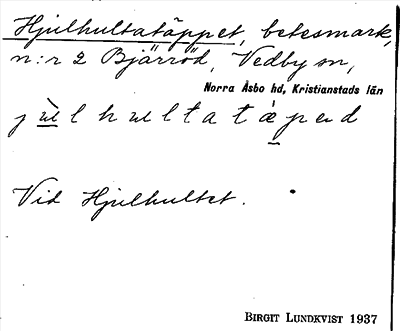 Hjulhultatäppet, betesmark,
n:r 2 Bjärröd, Vedby sn,
Norra Åsbo hd, Kristianstads län
Vid Hjulhultet.
BIRGIT LUNDKVIST 1937